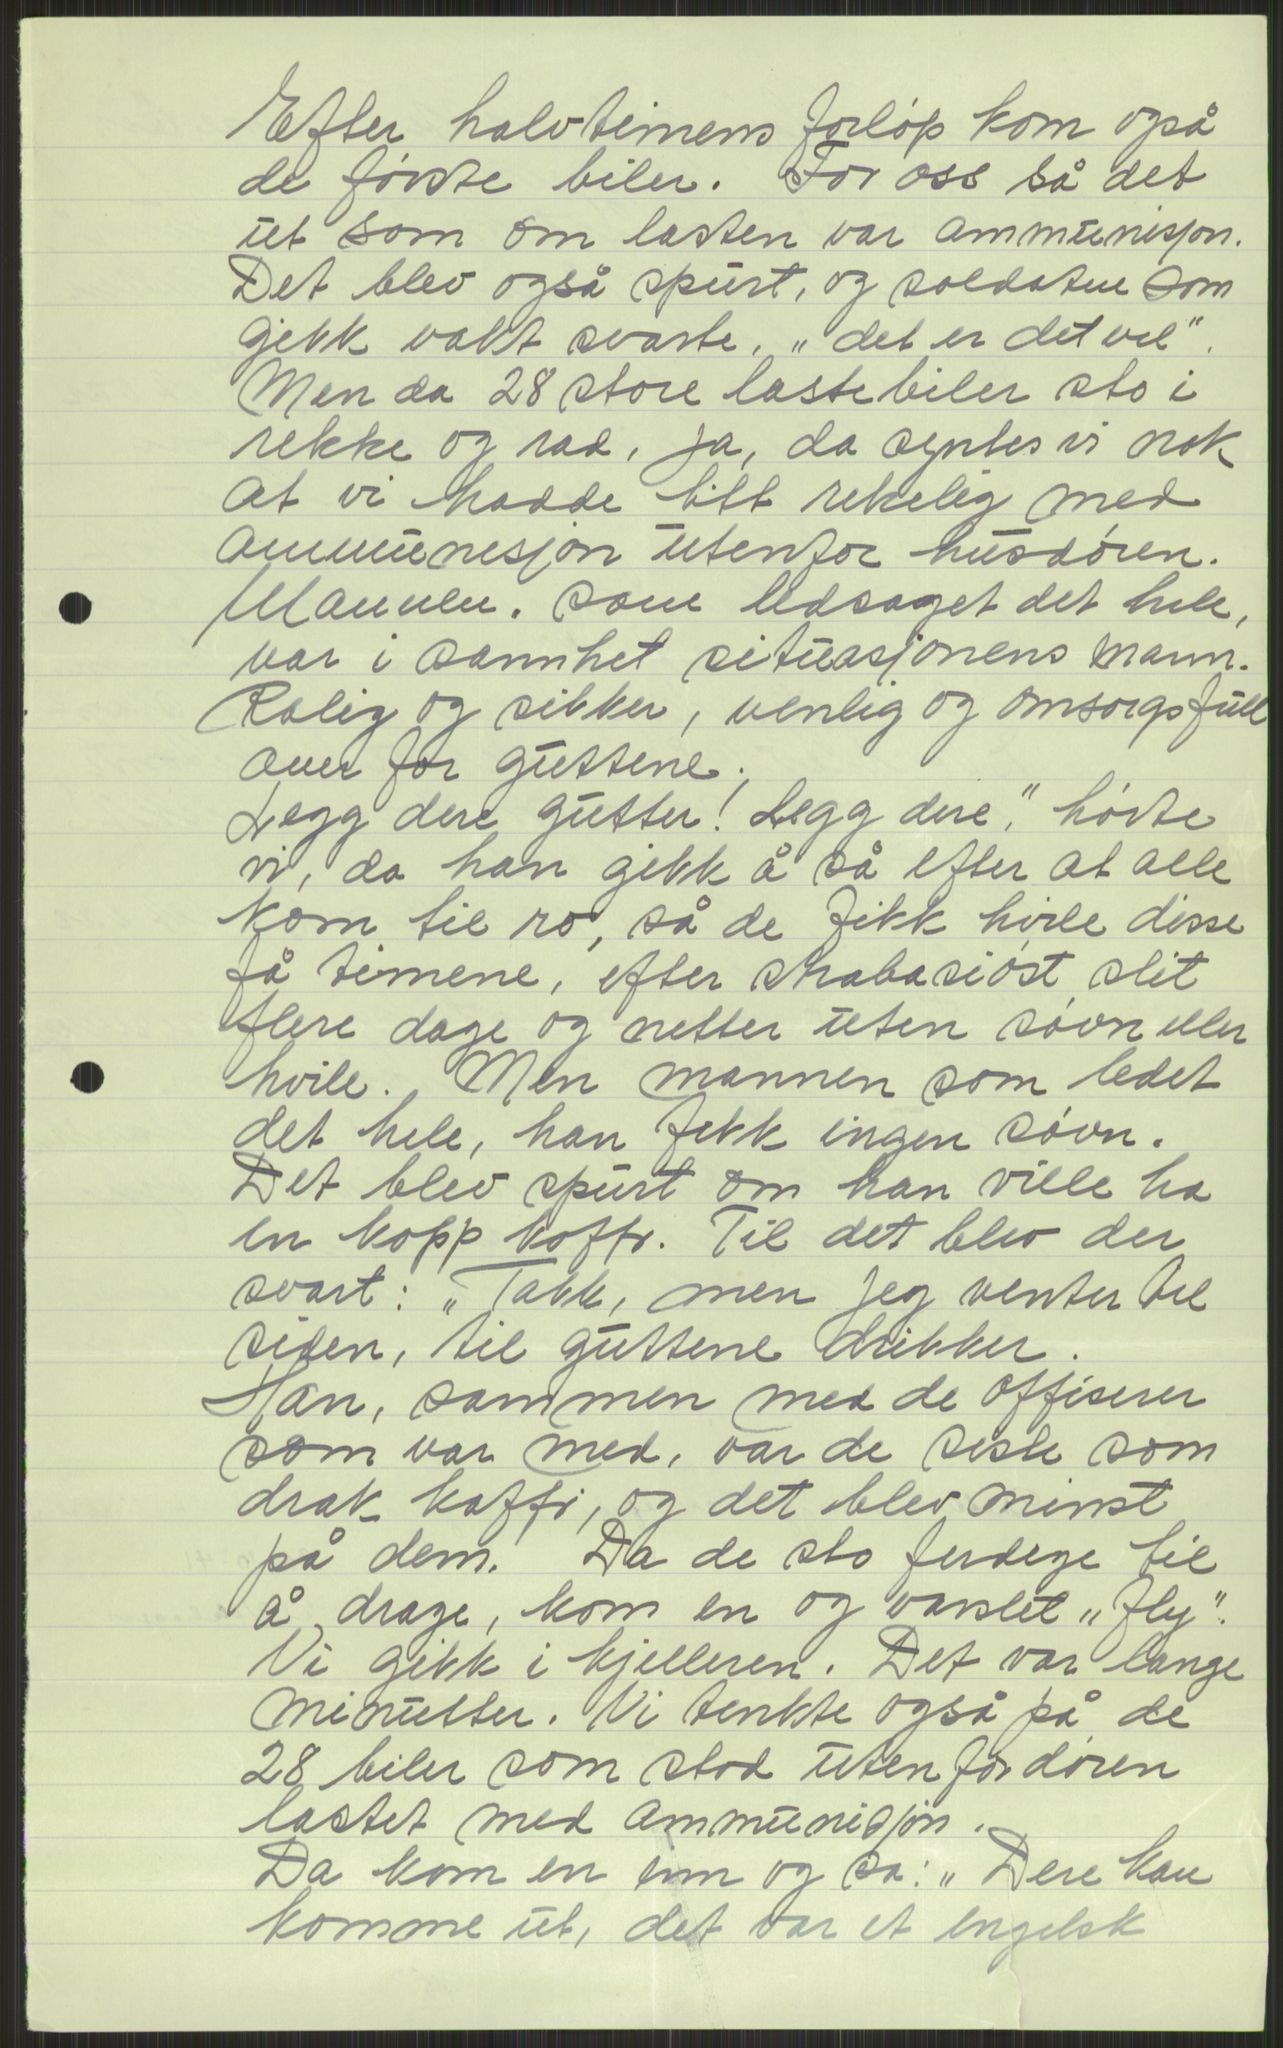 Efter halvtimens forløp kom også
de første biler. For oss så det
ut som om lasten var ammunisjon.
Det blev også spurt, og soldatene som
gikk vakt svarte, „det er det vel".
Men da 28 store lastebiler sto i
rekke og rad, ja, da syntes vi nok
at vi hadde litt rikelig med
ammunisjon utenfor husdøren.
Mannen. som ledsaget det hele,
var i sannhet situasjonens mann.
Rolig og sikker, venlig og omsorgsfull
over for guttene.
Legg dere gutter! Legg dere", hørte
vi, da han gikk å så efter at alle
kom til ro, så de fikk hvile disse
få timene, efter strabasiøst slit
flere dage og netter uten søvn eller
hvile. Men mannen som ledet
det hele, han fikk ingen søvn.
Det blev spurt om han ville ha
en kopp kaffi. Til det blev der
svart: „Takk, men jeg venter til
siden, til guttene drikker.
Han, sammen med de offiserer
som var med, var de siste som
drak kaffi, og det blev minst
på dem. Da de sto ferdige til
å drage, kom en og varslet „fly".
Vi gikk i kjelleren. Det var lange
minutter. Vi tenkte også på de
28 biler som stod utenfor døren
lastet med ammunisjon.
Da kom en inn og sa: „Dere kan
komme ut, det var et engelsk